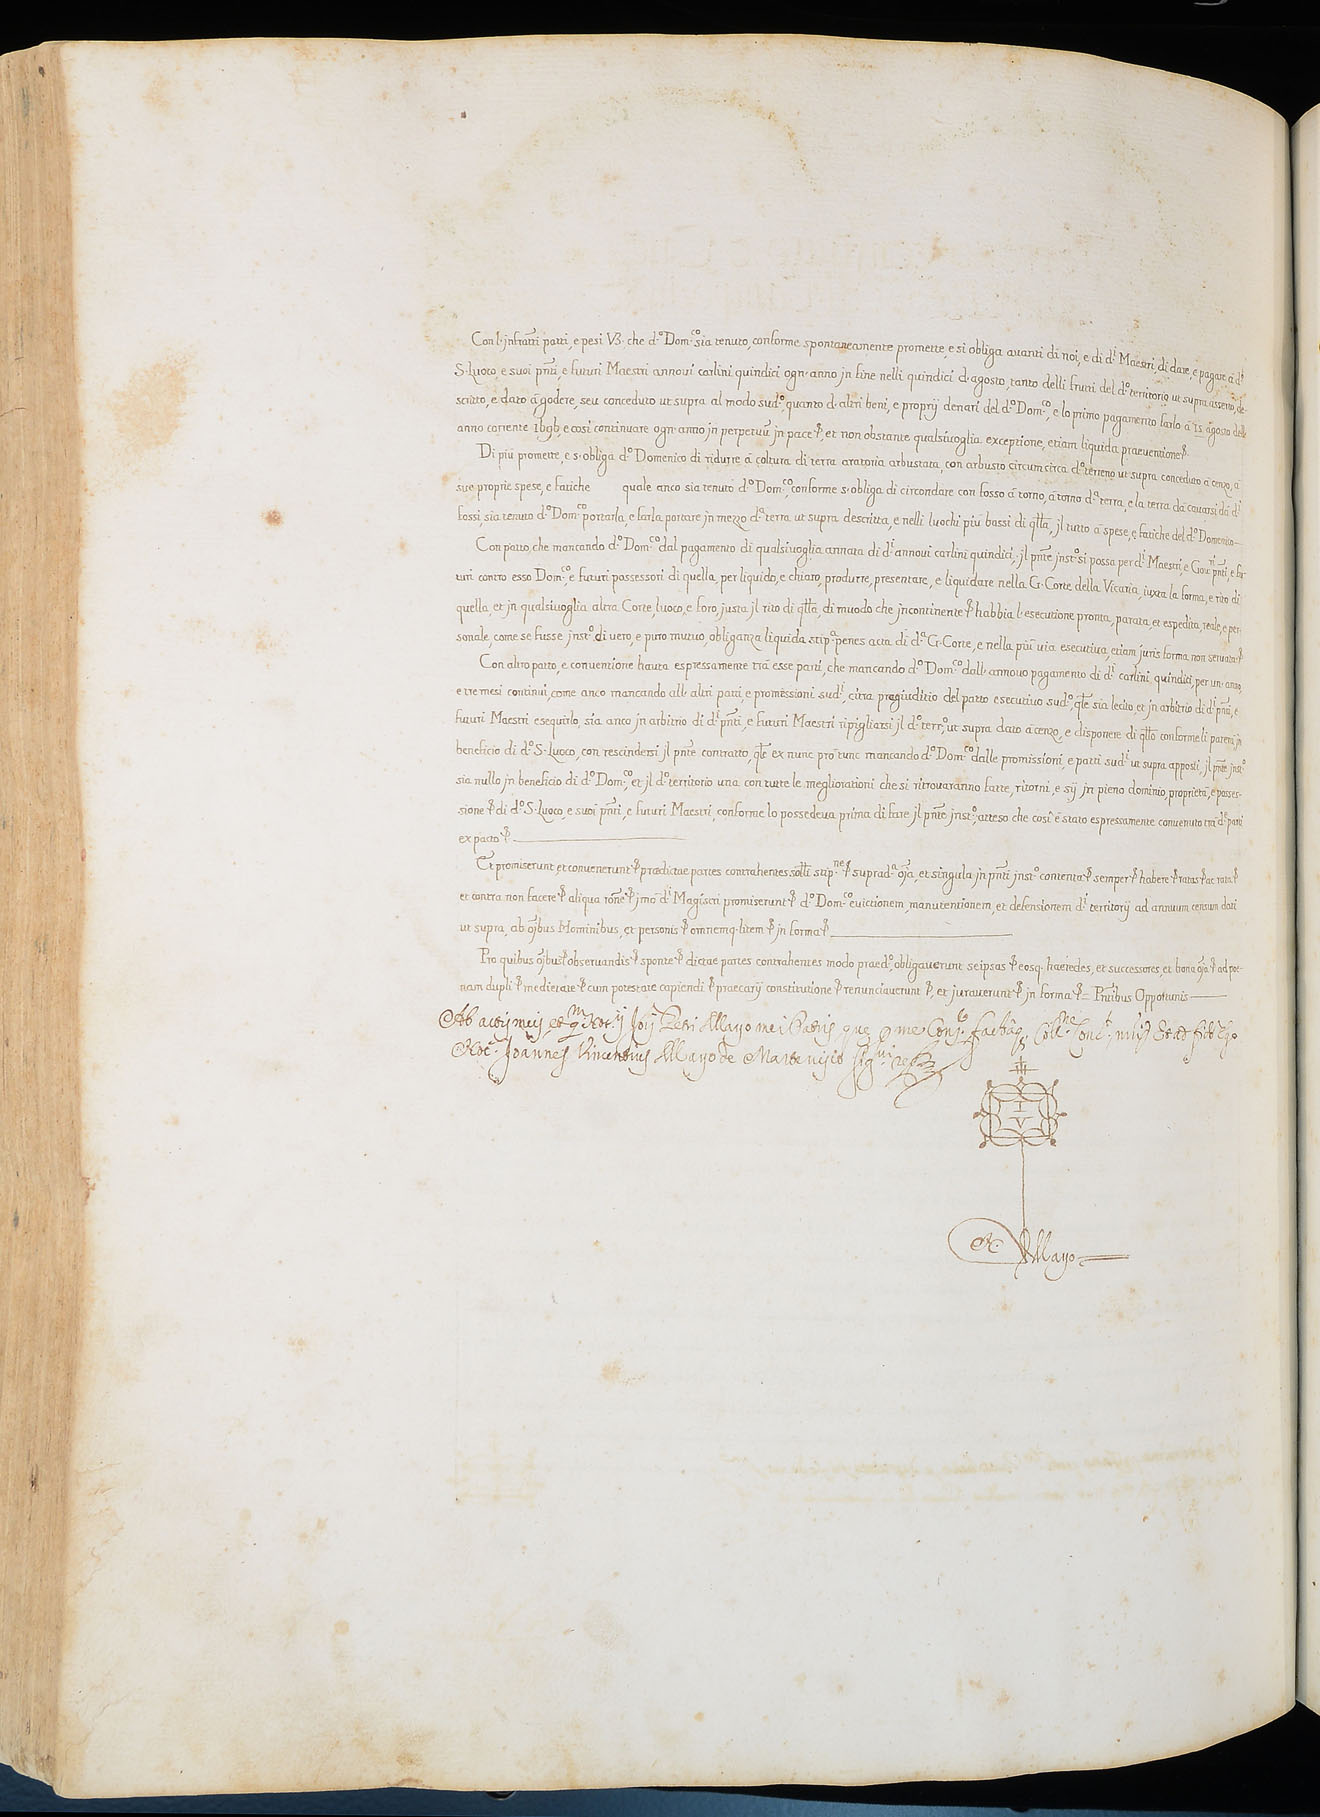 Con l'jnfratti patti, e pesi V3. che d.º Dom.co sia tenuto, conforme spontaneamente promette, e si obliga auanti di noi, e di d.i Maestri, di dare, e pagare à d.º
S. Luoco, e suoi pñti, e futuri Maestri annoui carlini quindici ogn'anno jn fine nelli quindici d'agosto, tanto delli frutti del d.º territorio ut supra
scritto, e dato à godere, seu conceduto ut supra al modo sud.º, quanto d'altri beni, e proprij denari del d.º Dom.co, e lo primo pagamento farlo à 15 agosto
anno corrente 1696, e così continuare ogn'anno jn perpetuũ jn pace &, et non obstante qualsiuoglia exceptione, etiam liquida praeuentione &.
Di più promette, e s'obliga d.º Domenico di ridurre à coltura di terra aratoria arbustata, con arbusto circum circa d.º terreno ut supra conceduto à cenzo, à
sue proprie spese, e fatiche quale anco sia tenuto d.º Dom.co conforme s'obliga di circondare con fosso à torno, à torno d.a terra, e la terra da cauarsi da d.i
fossi, sia tenuto d.º Dom.co portarla, e farla portare jn mezzo d.a terra ut supra descritta, e nelli luochi più bassi di qlla, jl tutto à spese, e fatiche del d.º Domenico
Con patto, che mancando d.º Dom.co dal pagamento di qualsiuoglia annata di d.i annoui carlini quindici, jl pñte jnst.º si possa per d.i Maestri, e Gou.ri pñti, e fu-
turi contro esso Dom.co, e futuri possessori di quella, per liquido, e chiaro, produrre, presentare, e liquidare nella G. Corte della Vicaria, iuxta la forma, e rito di
quella, et jn qualsiuoglia altra Corte, luoco, e foro, justa jl rito di qlla, di muodo che jncontinente & habbia l'esecutione pronta, parata, et espedita, reale, e per-
sonale, come se fusse jnst.º di vero, e puro mutuo, obliganza liquida stip.a penes acta di d.a G. Corte, e nella più via esecutiua, etiam juris forma non seruata &
Con altro patto, e conuentione hauta espressamente trà esse parti, che mancando d.º Dom.co dall'annouo pagamento di d.i carlini quindici, per un'anno,
e tre mesi continui, come anco mancando all'altri patti, e promissioni sud.i, citra pregiuditio del patto esecutiuo sud.º, qle sia lecito, et jn arbitrio di d.i pñti, e
futuri Maestri esequirlo, sia anco jn arbitrio di d.i pñti, e futuri Maestri ripigliarsi jl d.º terr.º, ut supra dato à cenzo, e disponere di qllo conforme li parerà jn
beneficio di d.º S. Luoco, con rescindersi jl pñte contratto, qle ex nunc pro tunc mancando d.º Dom.co dalle promissioni, e patti sud.i ut supra apposti, jl pñte jnst.º
sia nullo jn beneficio di d.º Dom.co, et jl d.º territorio una con tutte le megliorationi che si ritrouaranno fatte, ritorni, e sij jn pieno dominio, proprietà, e posses-
sione & di d.º S. Luoco, e suoi pñti, e futuri Maestri, conforme lo possedeua prima di fare jl pñte jnst.º, atteso che così è stato espressamente conuenuto trà d.e parti
ex pacto &
Et promiserunt, et conuenerunt & praedictae partes contrahentes solli stip.ne & suprad.a oja, et singula jn pñti jnst.º contenta & semper & habere & ratas & ac rata &
et contra non facere & aliqua rone & jmo d.i Magistri promiserunt & d.º Dom.co euictionem, manutentionem, et defensionem d.i territorij ad annuum censum dati
ut supra, ab ojbus Hominibus, et personis & omnemq. litem & jn forma &
Pro quibus ojbus & obseruandis & sponte & dictae partes contrahentes modo praed.º, obligauerunt seipsas & eosq. haeredes, et successores, et bona oja & ad poe-
nam dupli & medietate & cum potestate capiendi & praecarij constitutione & renunciauerunt &, et jurauerunt & jn forma & = Pñtibus Opportunis
Ab actis meis, et Not.ij Petri Mayo mei Patris, que me
Not.r Joannes Vincentius Mayo de Marte
I V
N. Mayo